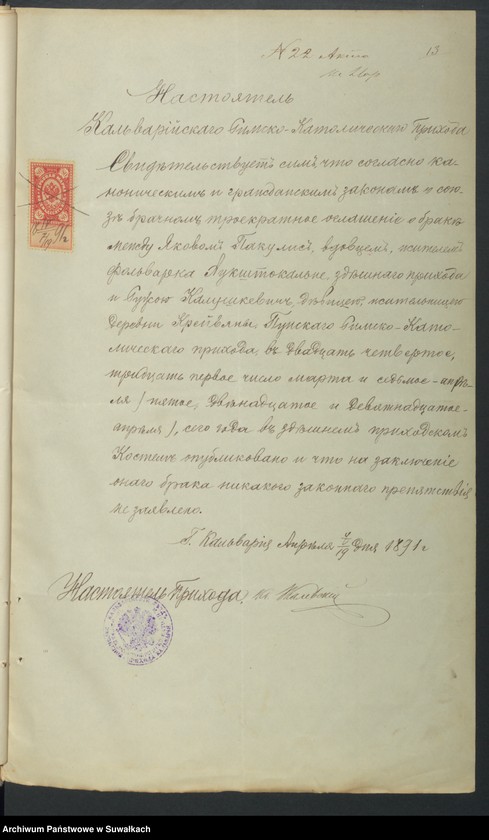 N 22 Акта 13
Настоятель
Кальварійскаго Римско-Католическаго Прихода
Свидѣтельствуетъ симъ что согласно ка-
ноническимъ и гражданскимъ законамъ о сою-
зѣ брачномъ троекратное оглашеніе о бракѣ
между Яковомъ Пакулисъ, вдовцемъ, жителемъ
фольварка Аукштокальне, здѣшняго прихода
и Калушкевичъ, дѣвицею, жительницею
деревни Крейвяны, Пунскаго Римско-Като-
лическаго прихода, въ двадцать четвертое,
тридцать первое число марта и седьмое апрѣ-
ля /пятое, двѣнадцатое и девятнадцатое
апрѣля/, сего года въ здѣшнемъ приходскомъ
Костелѣ публиковано и что на заключеніе
онаго брака никакого законнаго препятствія
не заявлено.
Г. Кальварія Апрѣля 7/19 дня 1891 г
Настоятель Прихода, Кс.
Archiwum Państwowe w Suwałkach